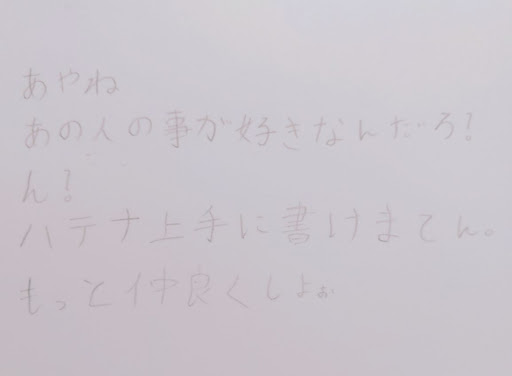 あやね
あの人の事が好きなんだろ?
ん?
ハテナ上手に書けまてん。
もっと仲良くしよぉ